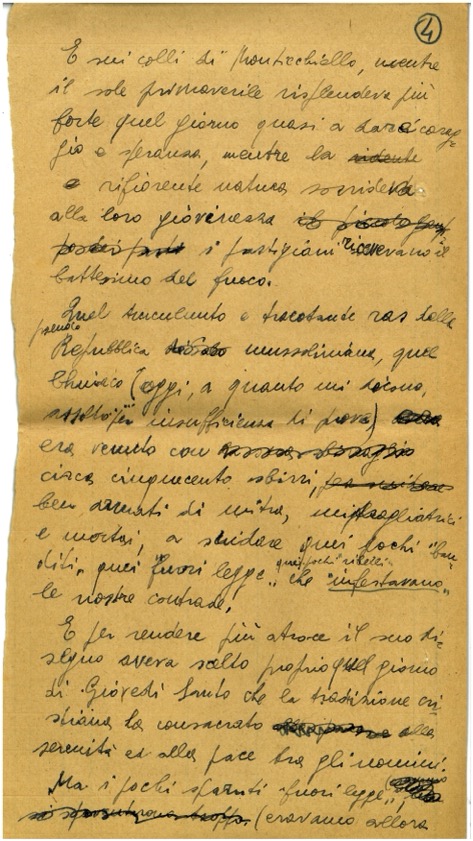 4
E sui colli di Monticchiello, mentre
il sole primaverile risplendeva più
forte quel giorno quasi a dare corag-
gio e speranza, mentre la ridente
e rifiorente natura sorrideva
alla loro giovinezza
i partigiani ricevevano il
battesimo del fuoco.
Quel truculento e tracotante ras della
pseudo
Repubblica mussoliniana, quel
(oggi, a quanto mi dicono,
assolto per insufficienza di prove)
era venuto con
circa cinquecento sbirri,
ben armati di mitra, mitragliatrici
e mortai, a snidare quei pochi "ban-
diti", quei "fuori legge", quei pochi "ribelli" che "infestavano"
le nostre contrade.
E per rendere più atroce il suo di-
segno aveva scelto proprio quel giorno
di Giovedì Santo che la tradizione cri-
stiana ha consacrato alla
serenità ed alla pace tra gli uomini.
Ma i pochi sparuti "fuori legge",
(eravamo allora